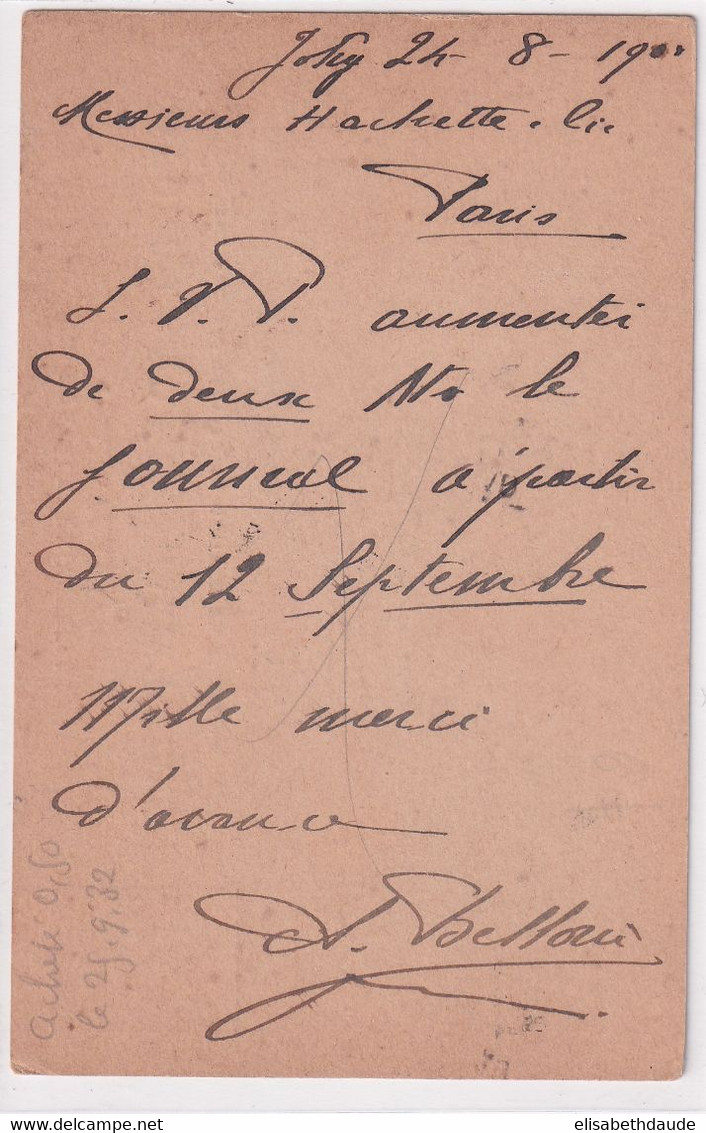 24 - 8 - 19
Messieurs Hachette & Cie
Paris
S. V. P. aumenter
de deux Nos le
Journal a partir
du 12 Septembre
Mille merci
d'avance
acheté 0,50
le 25.9.32
elisabethdaude